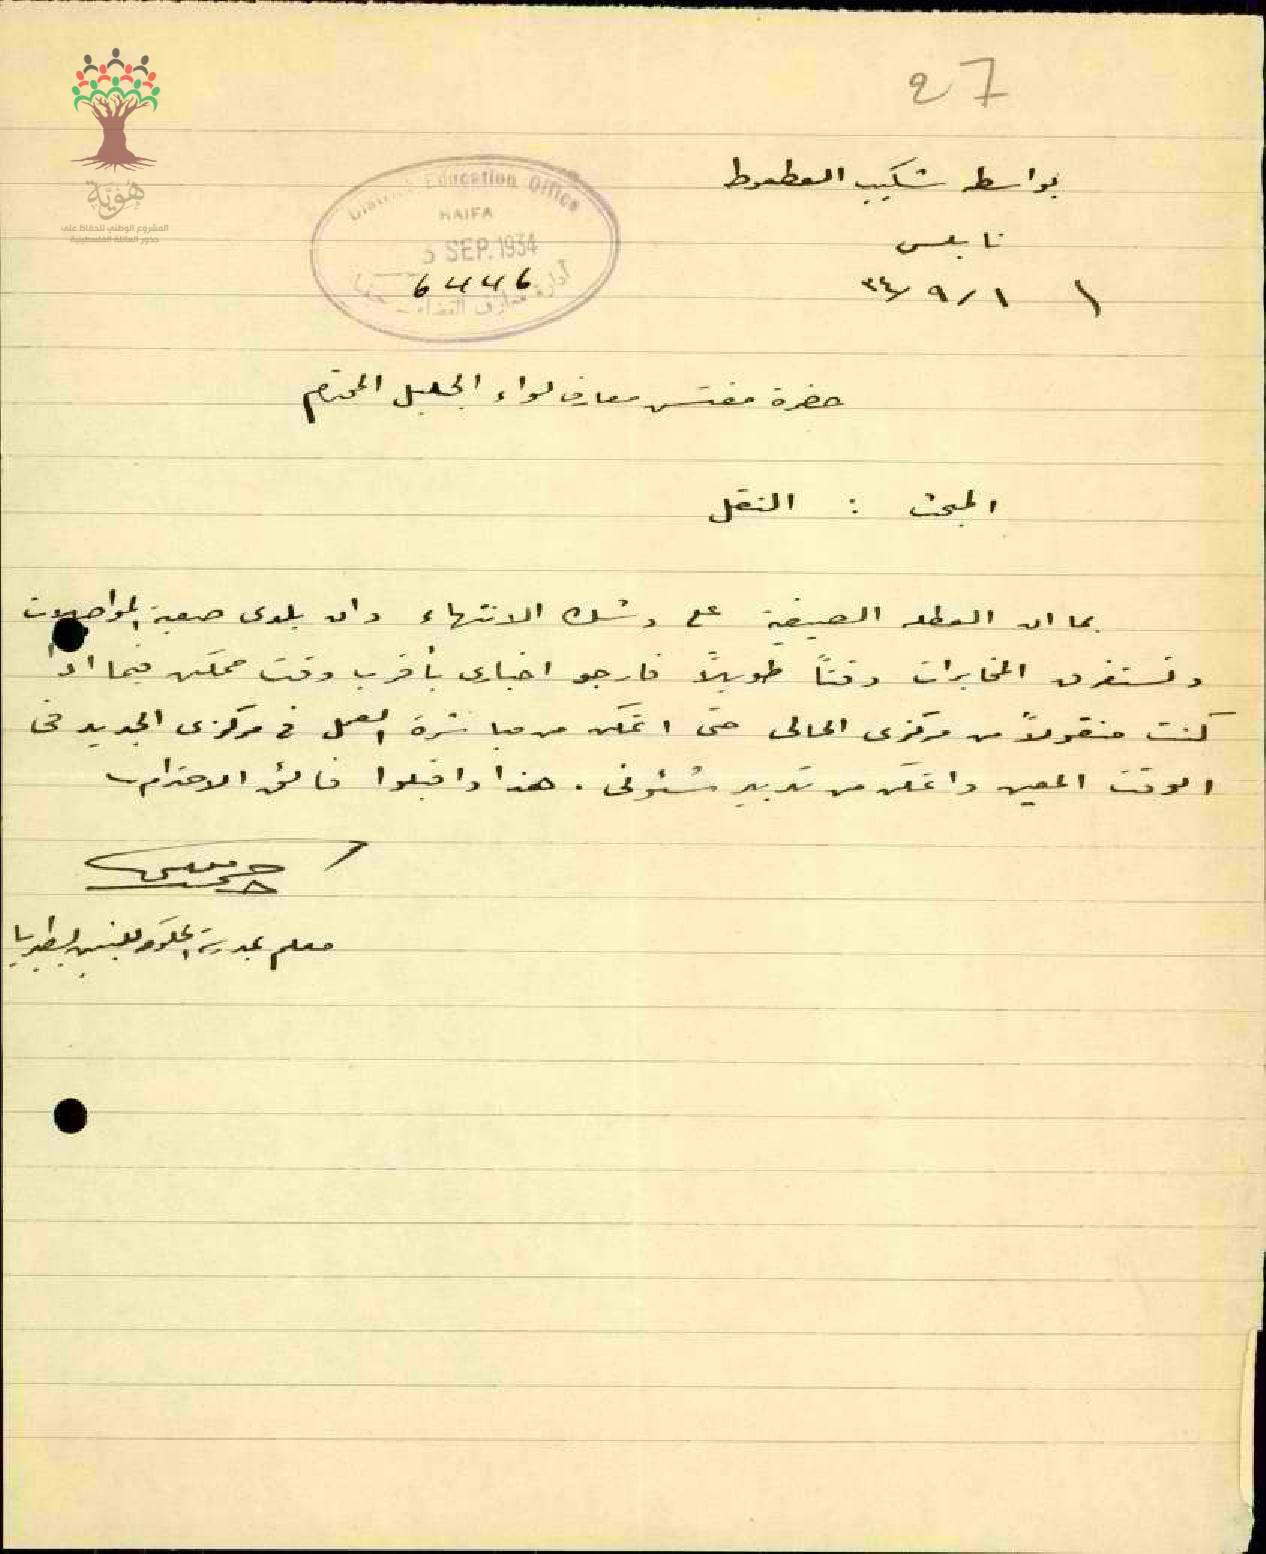 27
بواسطة شكيب العطعوط
نابلس
١/٩/٣٤
District Education Office
HAIFA
5 SEP. 1934
6446
أدارة معارف القضاء - حيفا
هُوِيَّة
المشروع الوطني للحفاظ على
جذور العائلة الفلسطينية
حضرة مفتش معارف لواء الجليل المحترم
المبحث : النقل
بما ان العطلة الصيفية على وشك الانتهاء وان بلدى صعبة المواصلات
وتستغرق المخابرات وقتاً طويلاً فارجو اخبارى بأقرب وقت ممكن فيما اذا
كنت منقولاً من مركزى الحالى حتى اتمكن من مباشرة العمل فى مركزى الجديد فى
الوقت المعين واتمكن من تدبير شئونى . هذا واقبلوا فائق الاحترام
معلم بمدرسة الحكومة للبنين